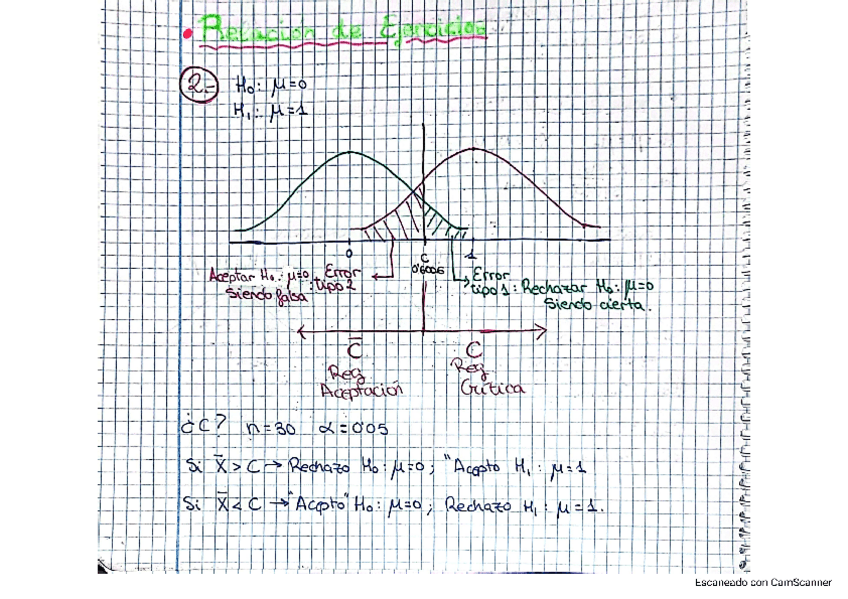 • Relación de Ejercicios
2.- H₀: μ=0
H₁: μ=1
0 C 1
0'6006
Aceptar H₀: μ=0 Error
Siendo falsa : tipo 2
Error
tipo 1: Rechazar H₀: μ=0
Siendo cierta.
C̅ C
Reg Reg
Aceptación Crítica
¿C? n=30 α=0'05
Si X̅ > C → Rechazo H₀: μ=0; "Acepto H₁: μ=1
Si X̅ < C → "Acepto" H₀: μ=0; Rechazo H₁: μ=1.
Escaneado con CamScanner